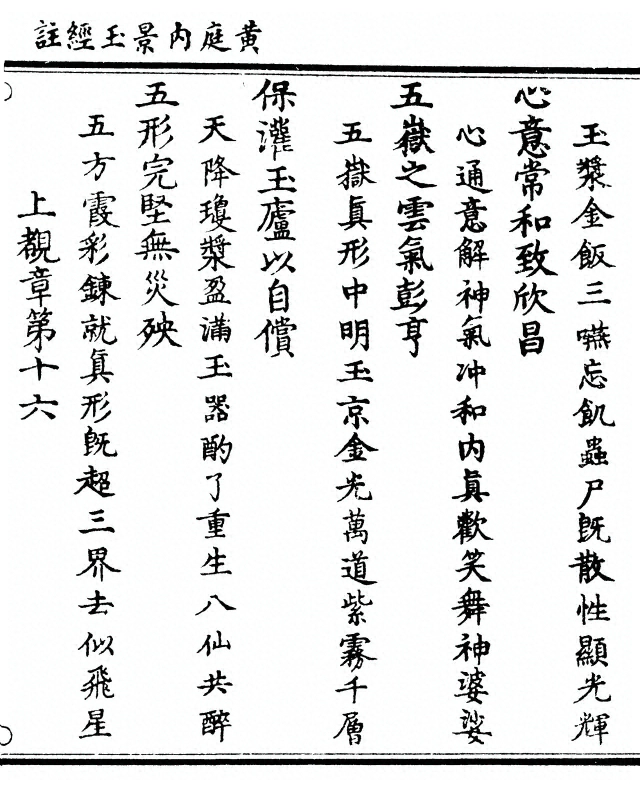 黃庭內景玉經註
玉漿金飯三嚥忘飢蟲尸旣散性顯光輝
心意常和致欣昌
心通意解神氣冲和內眞歡笑舞神婆娑
五嶽之雲氣彭亨
五嶽眞形中明玉京金光萬道紫霧千層
保灌玉廬以自償
天降瓊漿盈滿玉器酌了重生八仙共醉
五形完堅無災殃
五方霞彩鍊就眞形旣超三界去似飛星
上覩章第十六